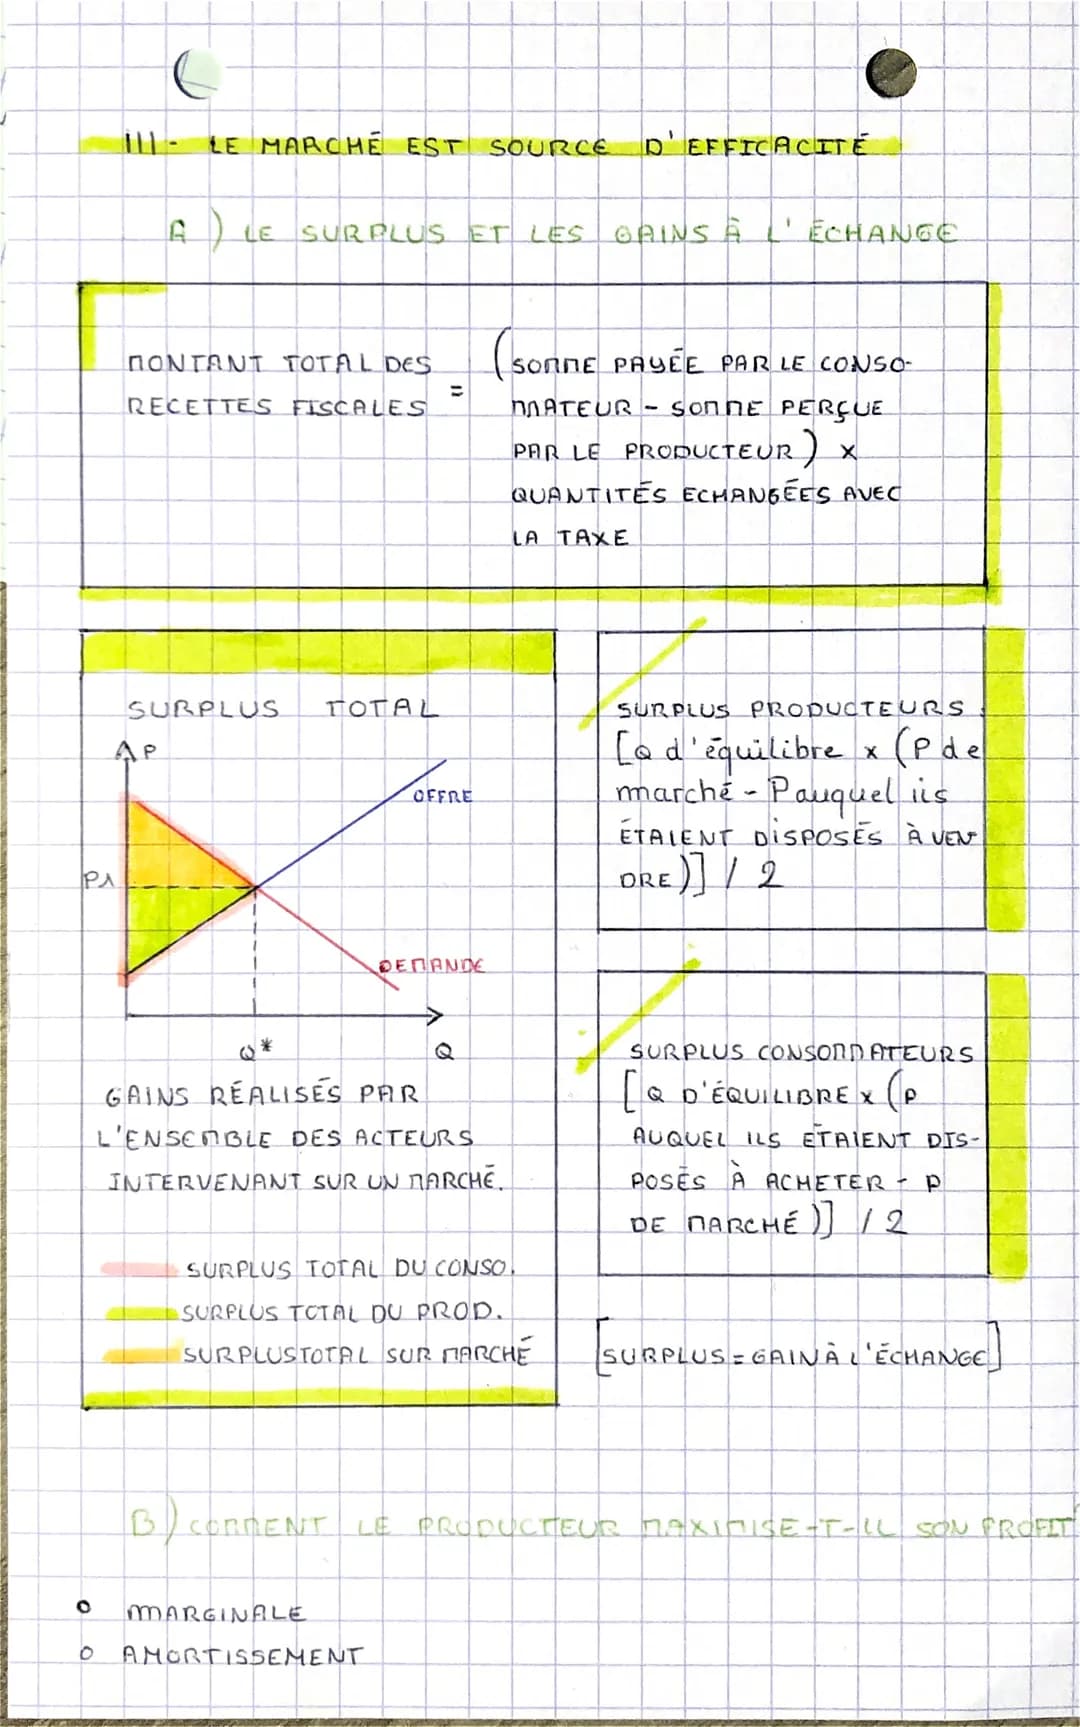 III- LE MARCHÉ EST SOURCE D'EFFICACITÉ
A) LE SURPLUS ET LES GAINS À L'ÉCHANGE
MONTANT TOTAL DES
RECETTES FISCALES
=
(SOMME PAYÉE PAR LE CONSO-
MMATEUR - SOMME PERÇUE
PAR LE PRODUCTEUR) x
QUANTITÉS ECHANGÉES AVEC
LA TAXE
SURPLUS TOTAL
P
OFFRE
P1
DEMANDE
Q*
Q
GAINS RÉALISÉS PAR
L'ENSEMBLE DES ACTEURS
INTERVENANT SUR UN MARCHÉ.
SURPLUS TOTAL DU CONSO.
SURPLUS TOTAL DU PROD.
SURPLUS TOTAL SUR MARCHÉ
SURPLUS PRODUCTEURS
[Q d'équilibre x (P de
marché - P auquel ils
ÉTAIENT DISPOSÉS À VEN
DRE)] / 2
SURPLUS CONSOMMATEURS
[Q D'ÉQUILIBRE x (P
AUQUEL ILS ÉTAIENT DIS-
POSÉS À ACHETER - P
DE MARCHÉ)] / 2
[SURPLUS = GAIN À L'ÉCHANGE]
B) COMMENT LE PRODUCTEUR MAXIMISE-T-IL SON PROFIT
o MARGINALE
o AMORTISSEMENT